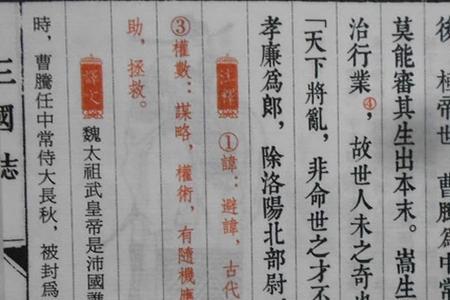 後，桓帝世，曹騰爲中常
莫能審其生出本末。嵩生
治行業④，故世人未之奇也
「天下將亂，非命世之才不
孝廉爲郎，除洛陽北部尉
注釋 ①諱：避諱，古代
③權數：謀略，權術，有隨機應
助，拯救。
譯文 魏太祖武皇帝是沛國譙
時，曹騰任中常侍大長秋，被封爲
三國志